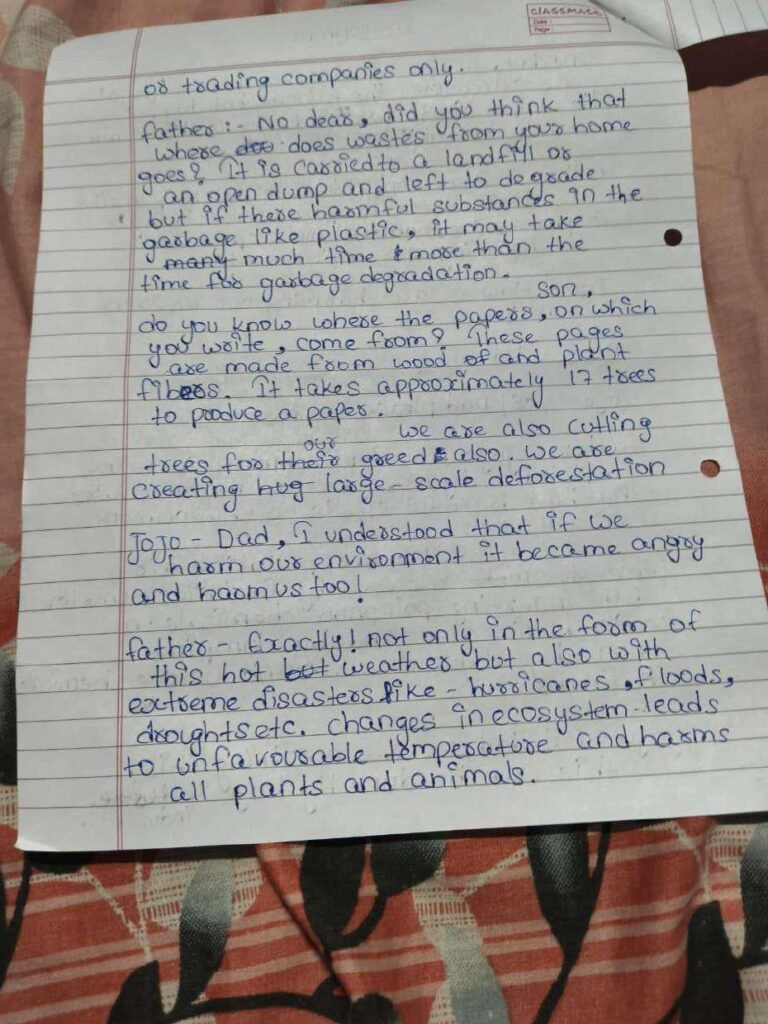 CLASSMATE
Date :
Page :
or trading companies only.
father :- No dear, did you think that
where does wastes from your home
goes? It is carried to a landfill or
an open dump and left to degrade
but if there harmful substances in the
garbage like plastic, it may take
many much time & more than the
time for garbage degradation.
son,
do you know where the papers, on which
you write, come from? These pages
are made from wood of and plant
fibers. It takes approximately 17 trees
to produce a paper.
we are also cutting
our
trees for their greed also. we are
creating hug large-scale deforestation
JoJo - Dad, I understood that if we
harm our environment it became angry
and harm us too!
father - Exactly! not only in the form of
this hot but weather but also with
extreme disasters like - hurricanes, floods,
droughts etc. changes in ecosystem leads
to unfavourable temperature and harms
all plants and animals.